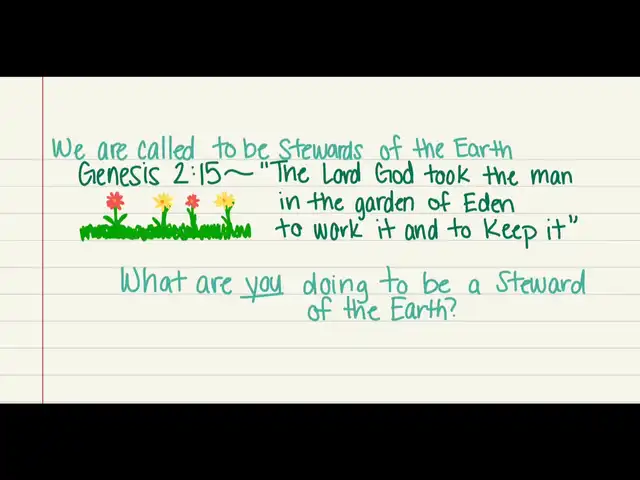 We are called to be Stewards of the Earth
Genesis 2:15~ "The Lord God took the man
in the garden of Eden
to work it and to Keep it"
What are you doing to be a Steward
of the Earth?